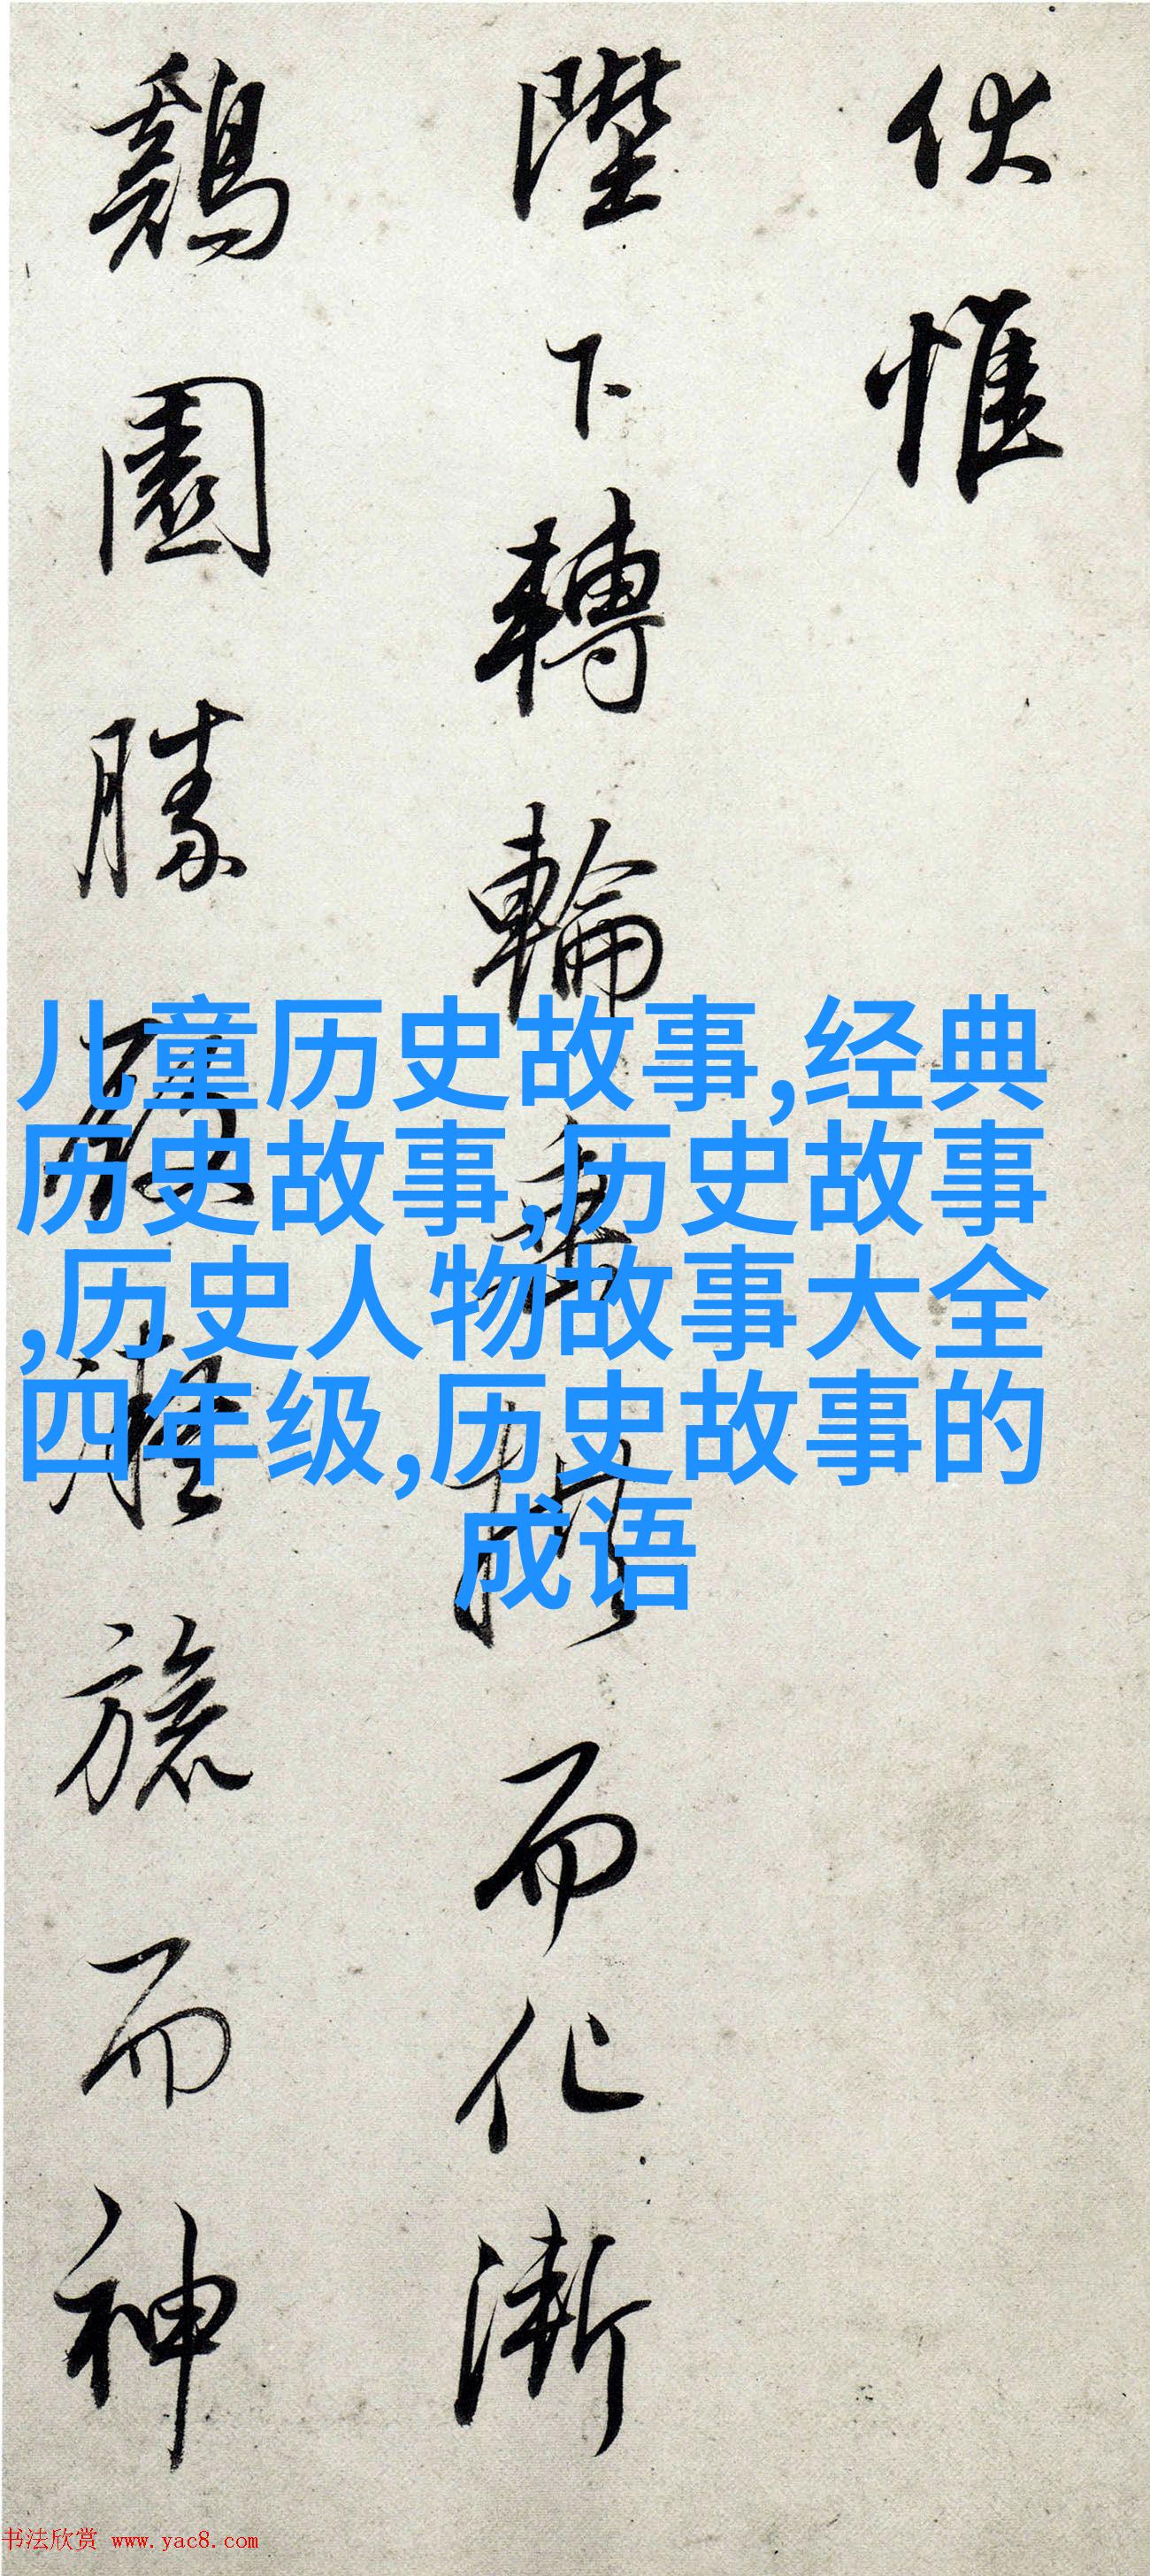 伏惟
陛下轉輪乘拱而化漸
鷄園勝殘凝旒而神
儿童历史故事,经典
历史故事,历史故事
,历史人物故事大全
四年级,历史故事的
成语
书法欣赏 www.yac8.com